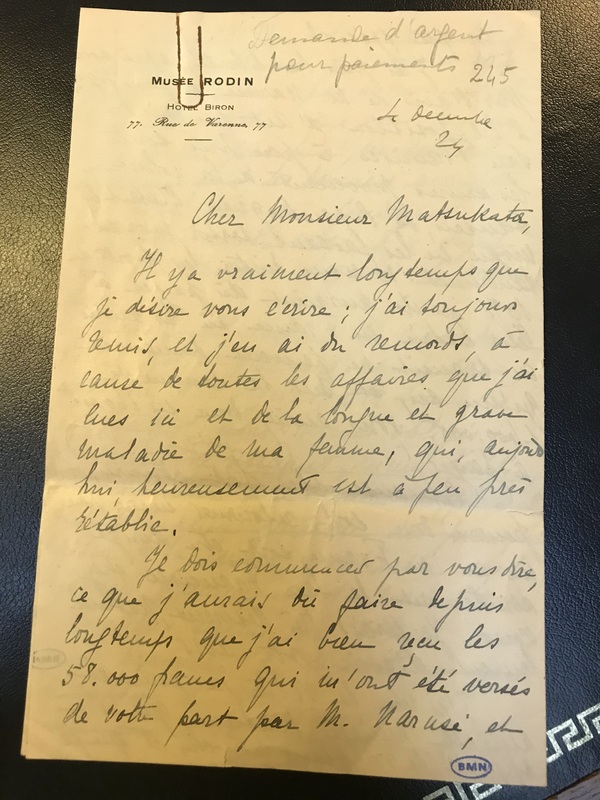 Demande d'argent
pour paiements 245
MUSÉE RODIN
HOTEL BIRON
77, Rue de Varenne, 77
4 décembre
24
Cher Monsieur Matsukata,
Il y a vraiment longtemps que
je désire vous écrire ; j'ai toujours
remis, et j'en ai du remords, à
cause de toutes les affaires que j'ai
eues ici et de la longue et grave
maladie de ma femme, qui, aujourd
hui, heureusement est à peu près
rétablie.
Je dois commencer par vous dire,
ce que j'aurais dû faire depuis
longtemps que j'ai bien reçu les
58.000 francs qui m'ont été versés
de votre part par M. Narusé, et
BMN